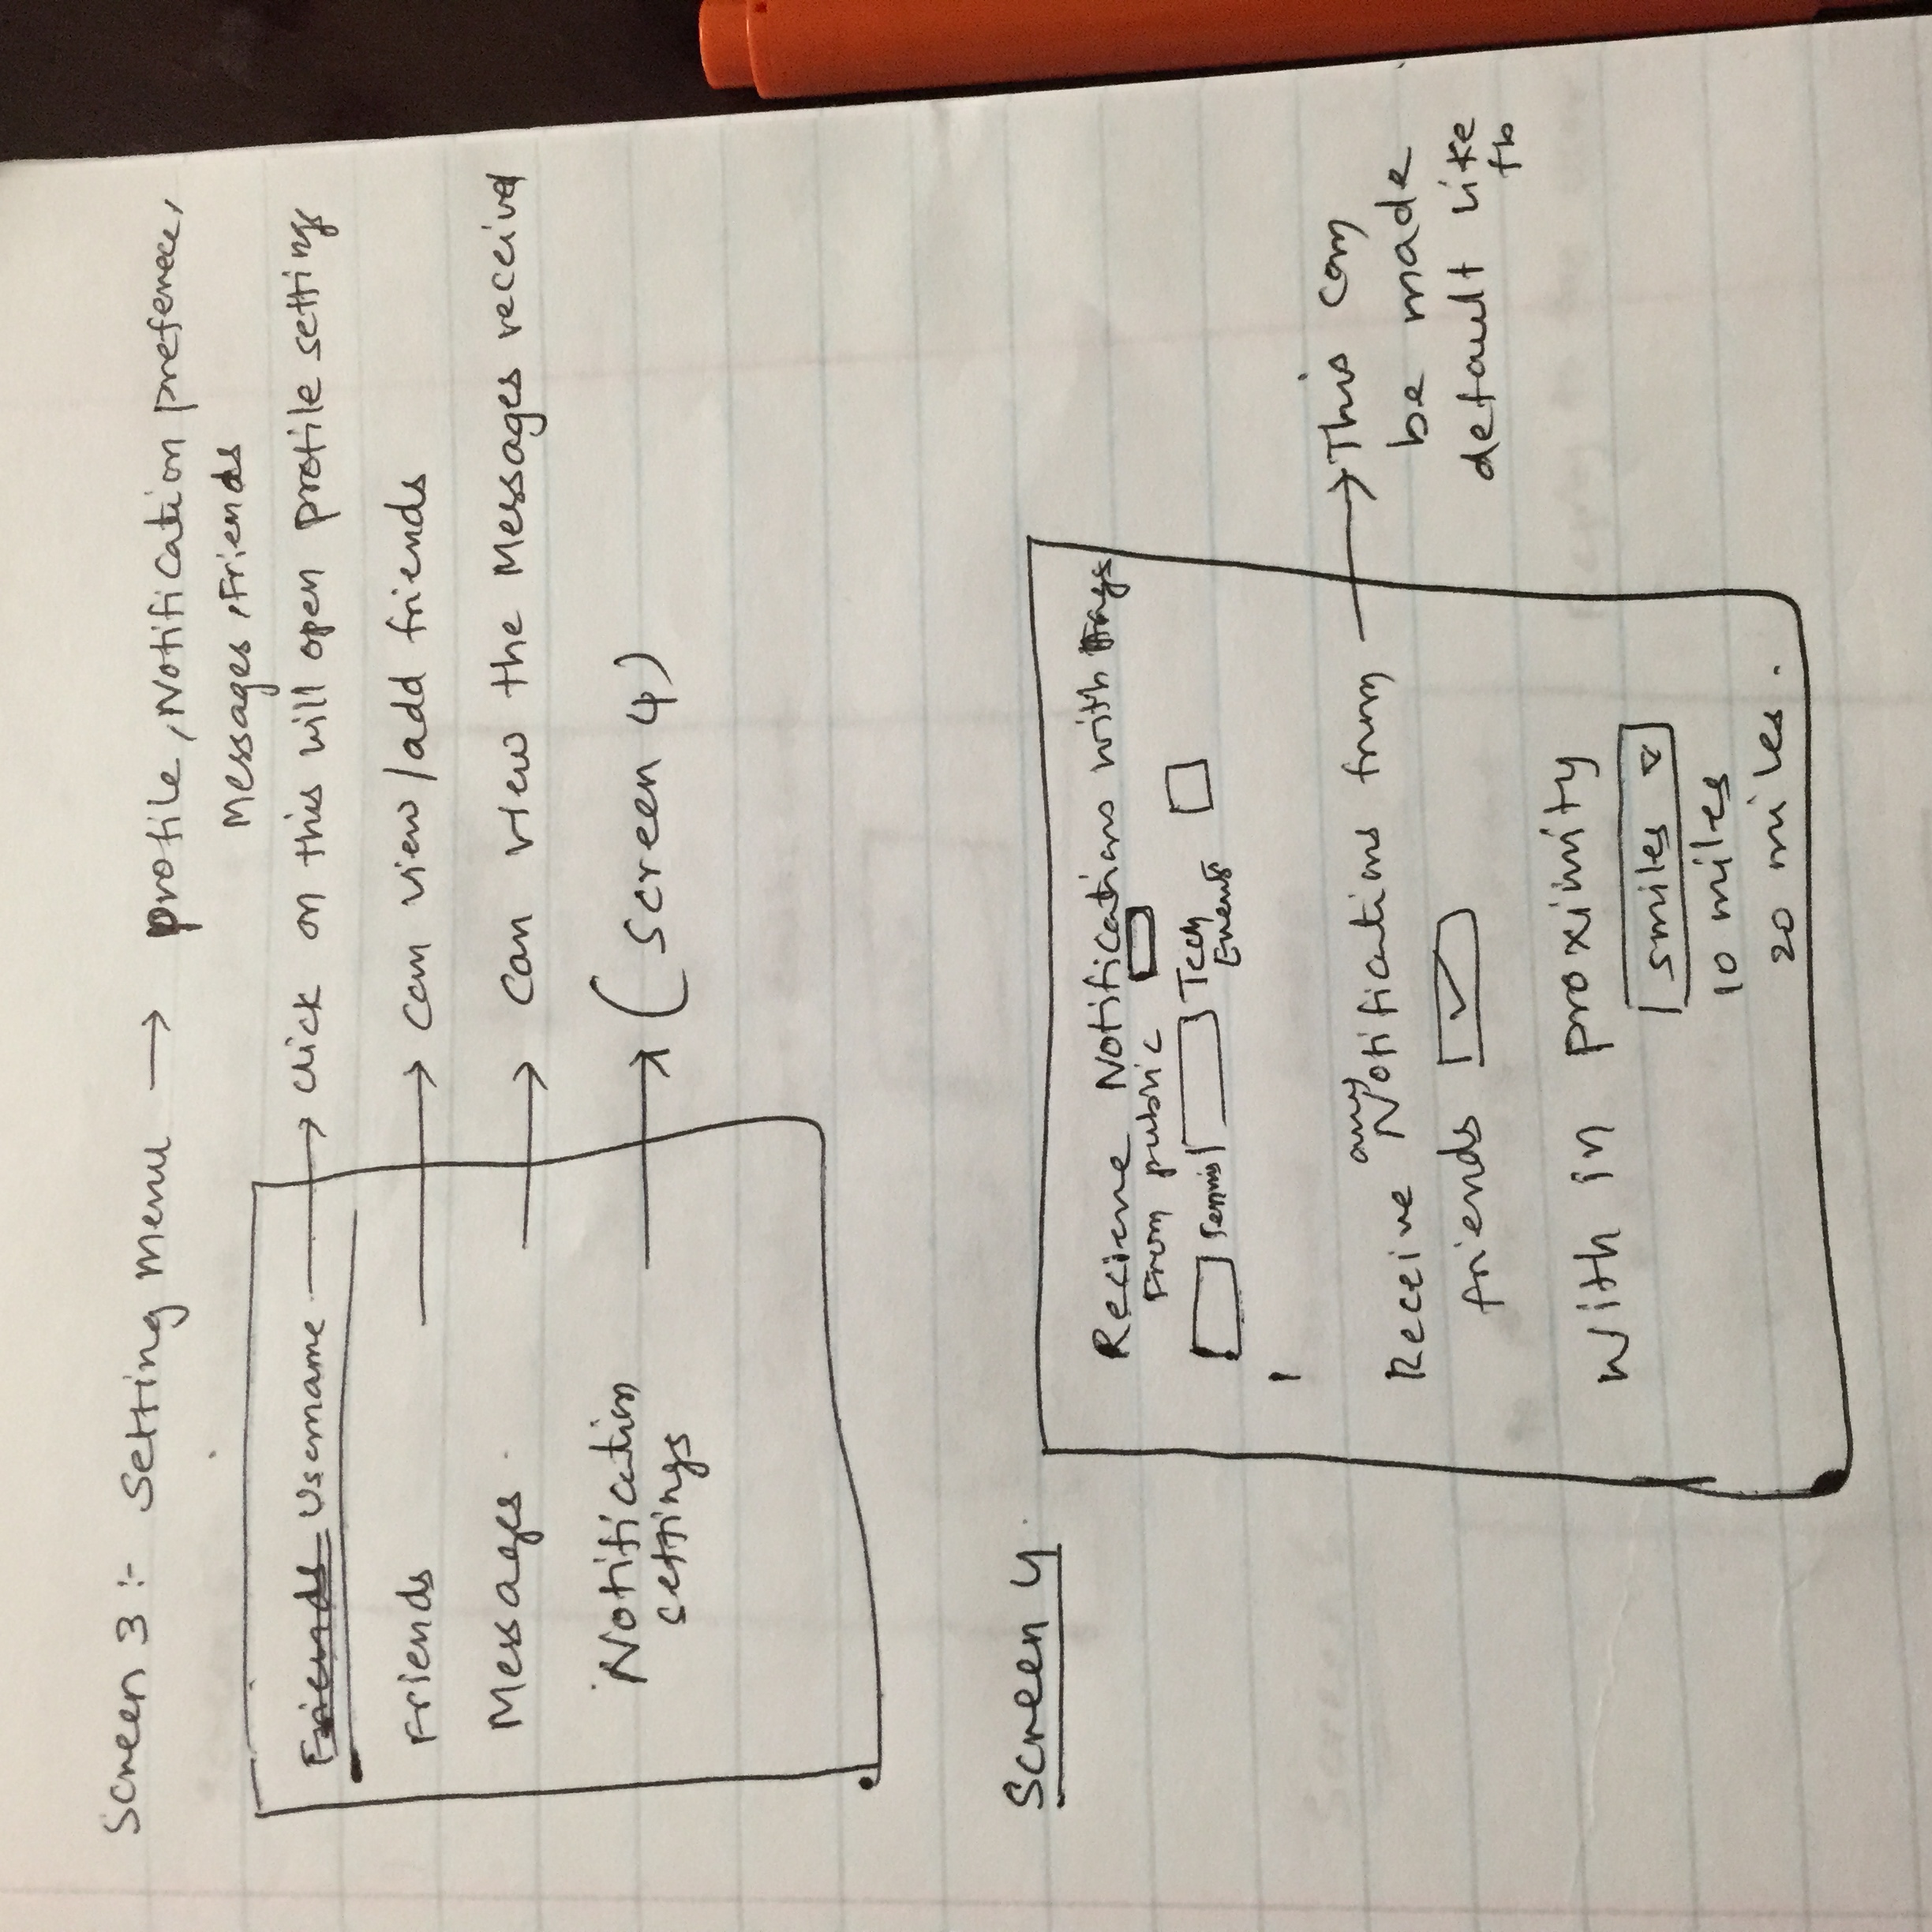 Screen 3 :- Setting menu → profile, Notification preferece,
Messages, Friends
Friends Username → click on this will open profile settings
Friends → can view/add friends
Messages → can view the Messages received
Notification → (Screen 4)
settings
Screen 4
Recieve Notifications with tags
From public
Tennis Tech
Events
any
Receive Notifications from → This can
be made
friends ✓
default like
fb
With in proximity
5miles
10 miles
20 miles.